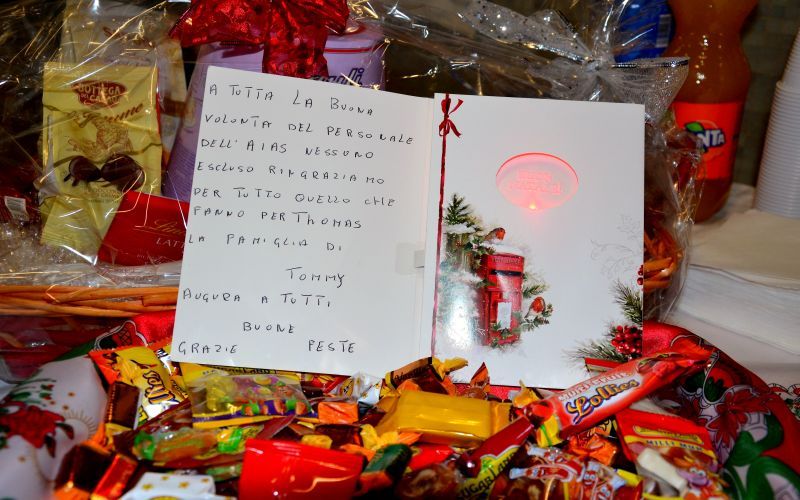 BOTTEGA
A TUTTA LA BUONA
VOLONTÀ DEL PERSONALE
DELL'AIAS NESSUNO
ESCLUSO RINGRAZIAMO
PER TUTTO QUELLO CHE
FANNO PER THOMAS
LA FAMIGLIA DI
TOMMY
AUGURA A TUTTI
BUONE
GRAZIE FESTE
BUON
NATALE
FANTA
Lollies